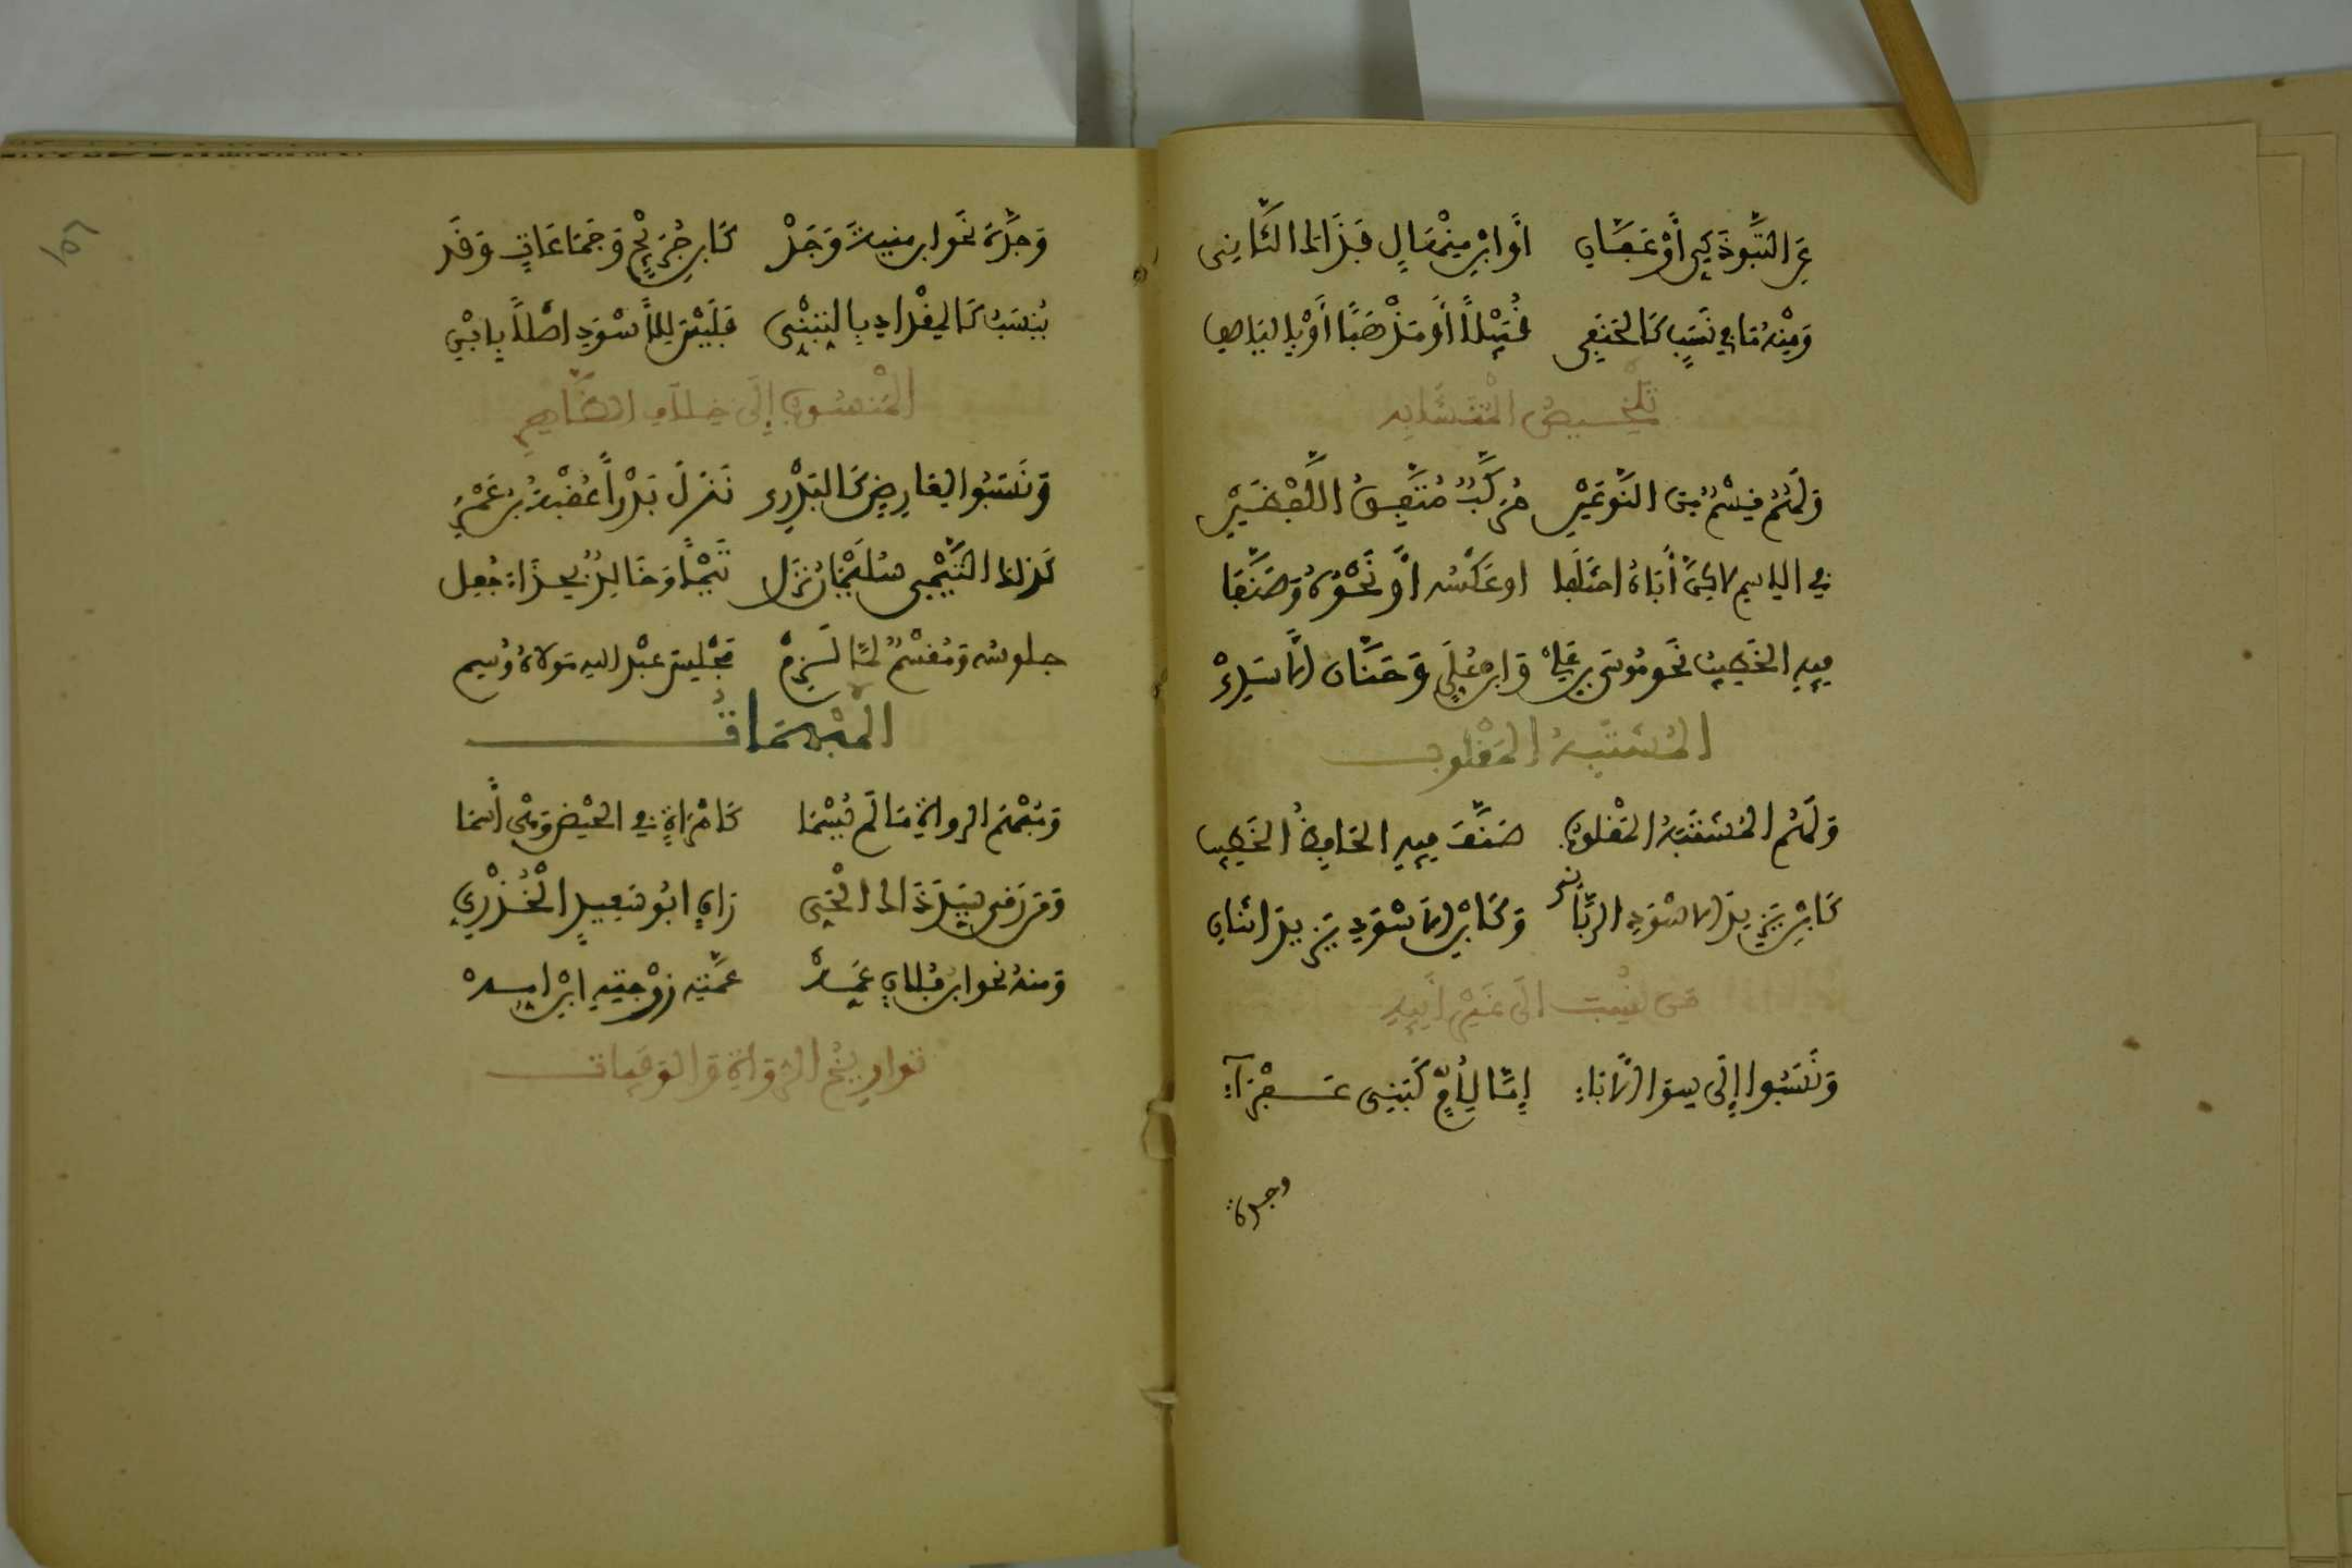 عن التبوذكي أو عفان أو ابن منهال فذاك الثاني
ومنه ما في نسب كالحنفي قبيلا أو مذهبا أو باليا صف
تلخيص المتشابه
ولهم قسم من النوعين مركب متفق اللفظين
في الاسم لاكن أباه اختلفا او عكسه أو نحوه وصنفا
فيه الخطيب نحو موسى بن علي وابن علي وحنان الأسدي
المشتبه المقلوب
ولهم المشتبه المقلوب صنف فيه الحافظ الخطيب
كابن يزيد الاسود الرباني وكابن الأسود يزيد اثنان
من نسب الى غير أبيه
ونسبوا إلى سوى الآباء إما لأم كبني عفراء
وجدة
وجدة نحو ابن منية وجد كابن جريج وجماعات وقد
ينسب كالمقداد بالتبني فليس للأسود أصلا بابن
المنسوب إلى خلاف الظاهر
ونسبوا لعارض كالبدري نزل بدرا عقبة بن عمرو
كذلك التيمي سليمان نزل تيما وخالد بحذاء جعل
جلوسه ومقسم لما لزم مجلس عبد الله مولاه وسم
المبهمات
ومبهم الرواة ما لم يسما كامرأة في الحيض وهي أسما
ومن رقى سيد ذاك الحي راق ابو سعيد الخدري
ومنه نحو ابن فلان عمه عمته زوجته ابن امه
تواريخ الرواة والوفيات